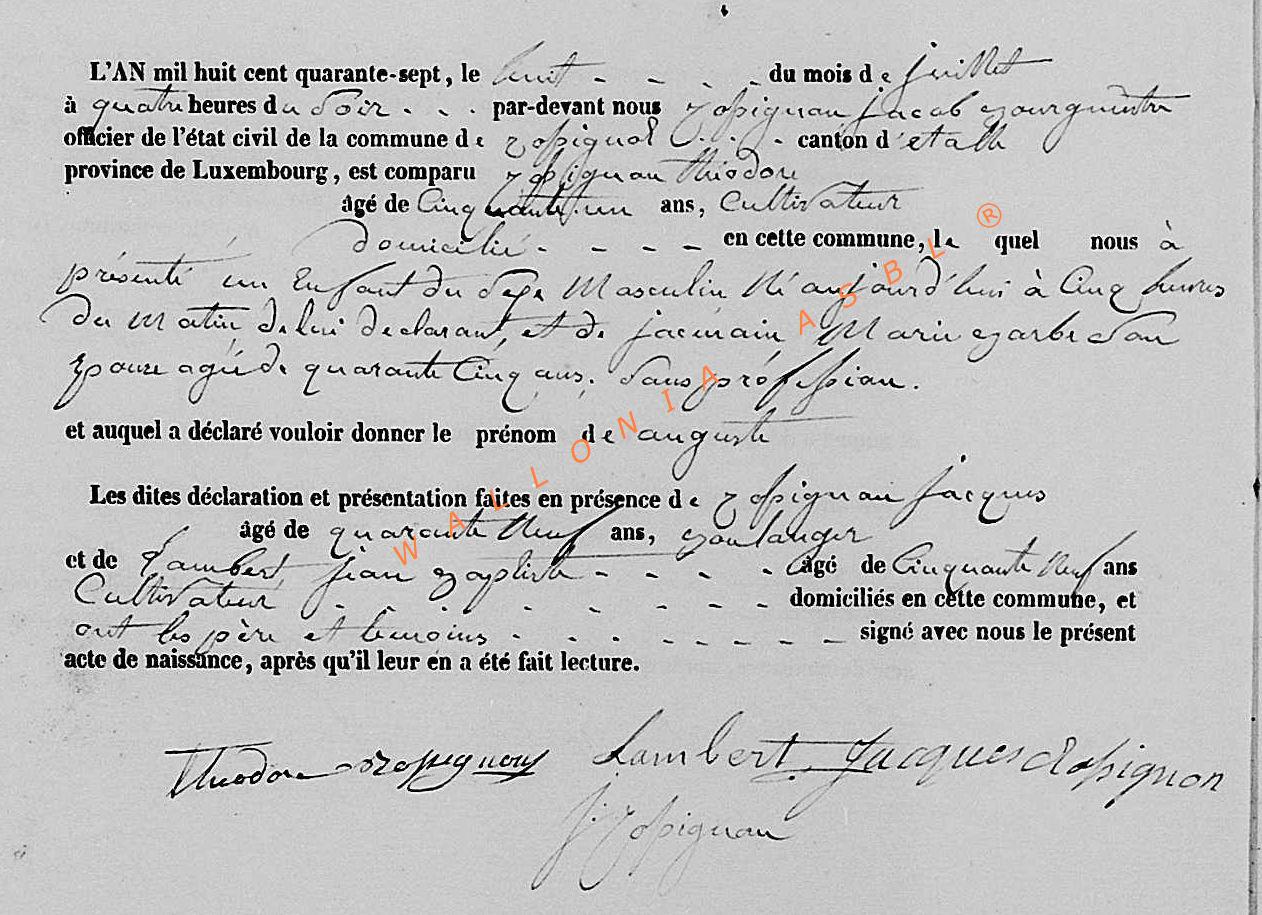 L'AN mil huit cent quarante-sept, le huit - - - - du mois de juillet
à quatre heures du Soir - - - par-devant nous Rossignon jacob Bourgmestre
officier de l'état civil de la commune de Rossignol - - - canton d'etalle
province de Luxembourg, est comparu Rossignon théodore
âgé de Cinquante un ans, Cultivateur
domicilié - - - - en cette commune, le quel nous à
présenté un Enfant du Sexe Masculin Né aujourd'hui à Cinq heures
du Matin, de lui declarant, et de jacmain Marie Barbe Son
Epouse agée de quarante Cinq ans. Sans proféssion.
et auquel a déclaré vouloir donner le prénom de auguste
Les dites déclaration et présentation faites en présence de Rossignon jacques
âgé de quarante Neuf ans, Boulanger
et de Lambert jean Baptiste - - - - âgé de Cinquante Neuf ans
Cultivateur - - - - - - - - domiciliés en cette commune, et
ont les père et temoins - - - - - - - signé avec nous le présent
acte de naissance, après qu'il leur en a été fait lecture.
Théodore Rossignon Lambert Jacques Rossignon
J. Rossignon
WALLONIA ASBL ®